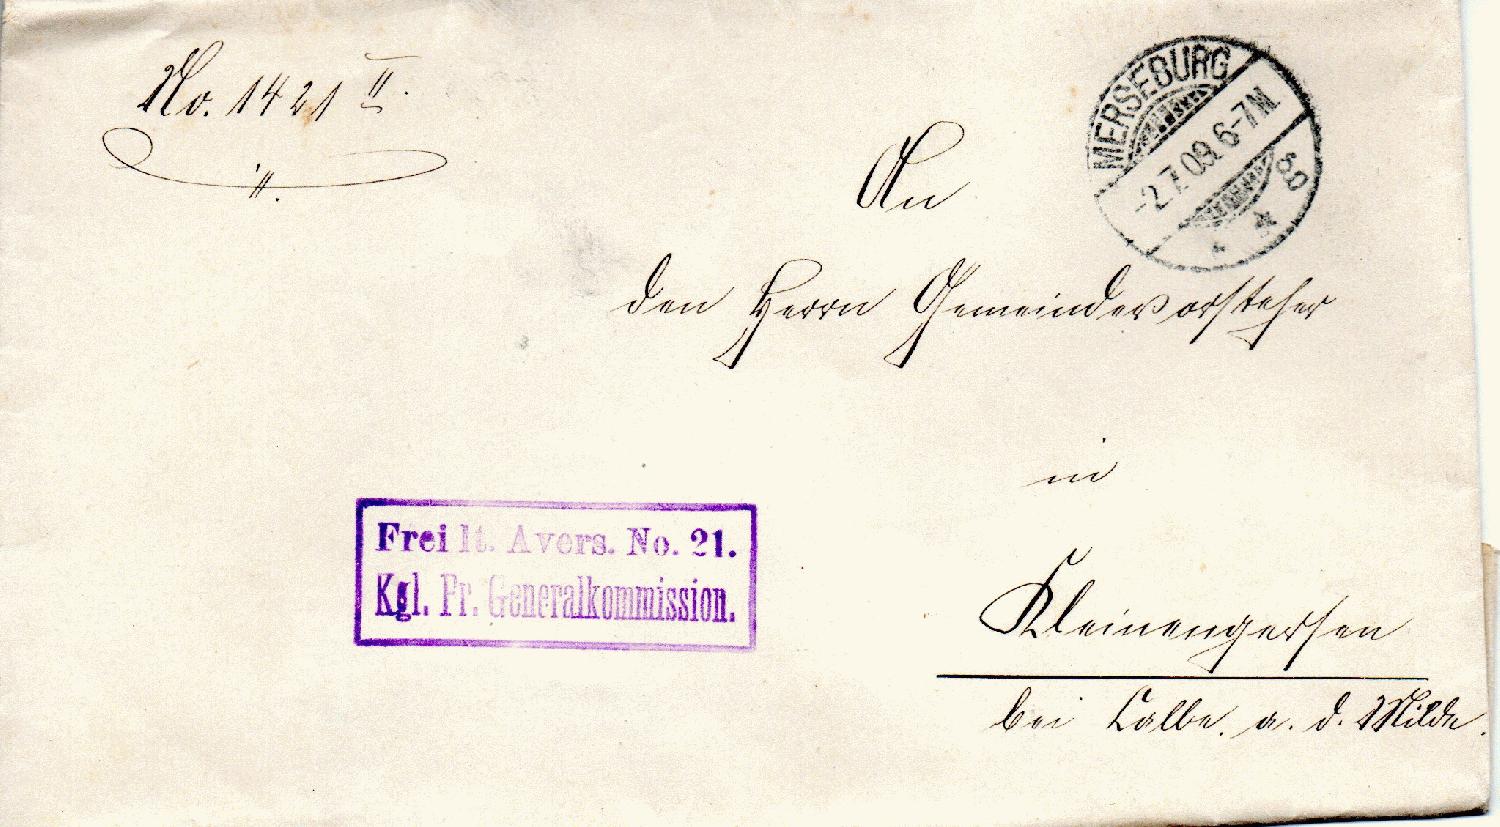 No. 1421 II.
MERSEBURG
-2.7.09. 6-7N.
An
den Herrn Gemeindevorsteher
in
Frei lt. Avers. No. 21.
Kgl. Pr. Generalkommission.
Kleinengersen
bei Calbe. a. d. Milde.